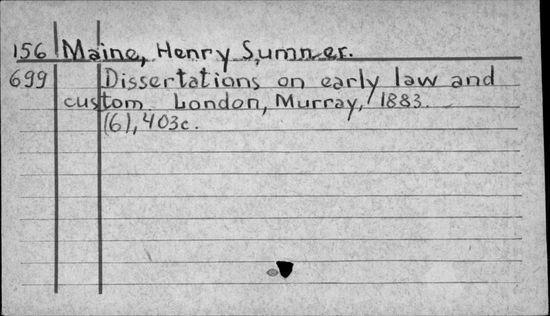 156 Maine, Henry Sumner.
699 Dissertations on early law and
custom London, Murray, 1883.
(6), 403c.